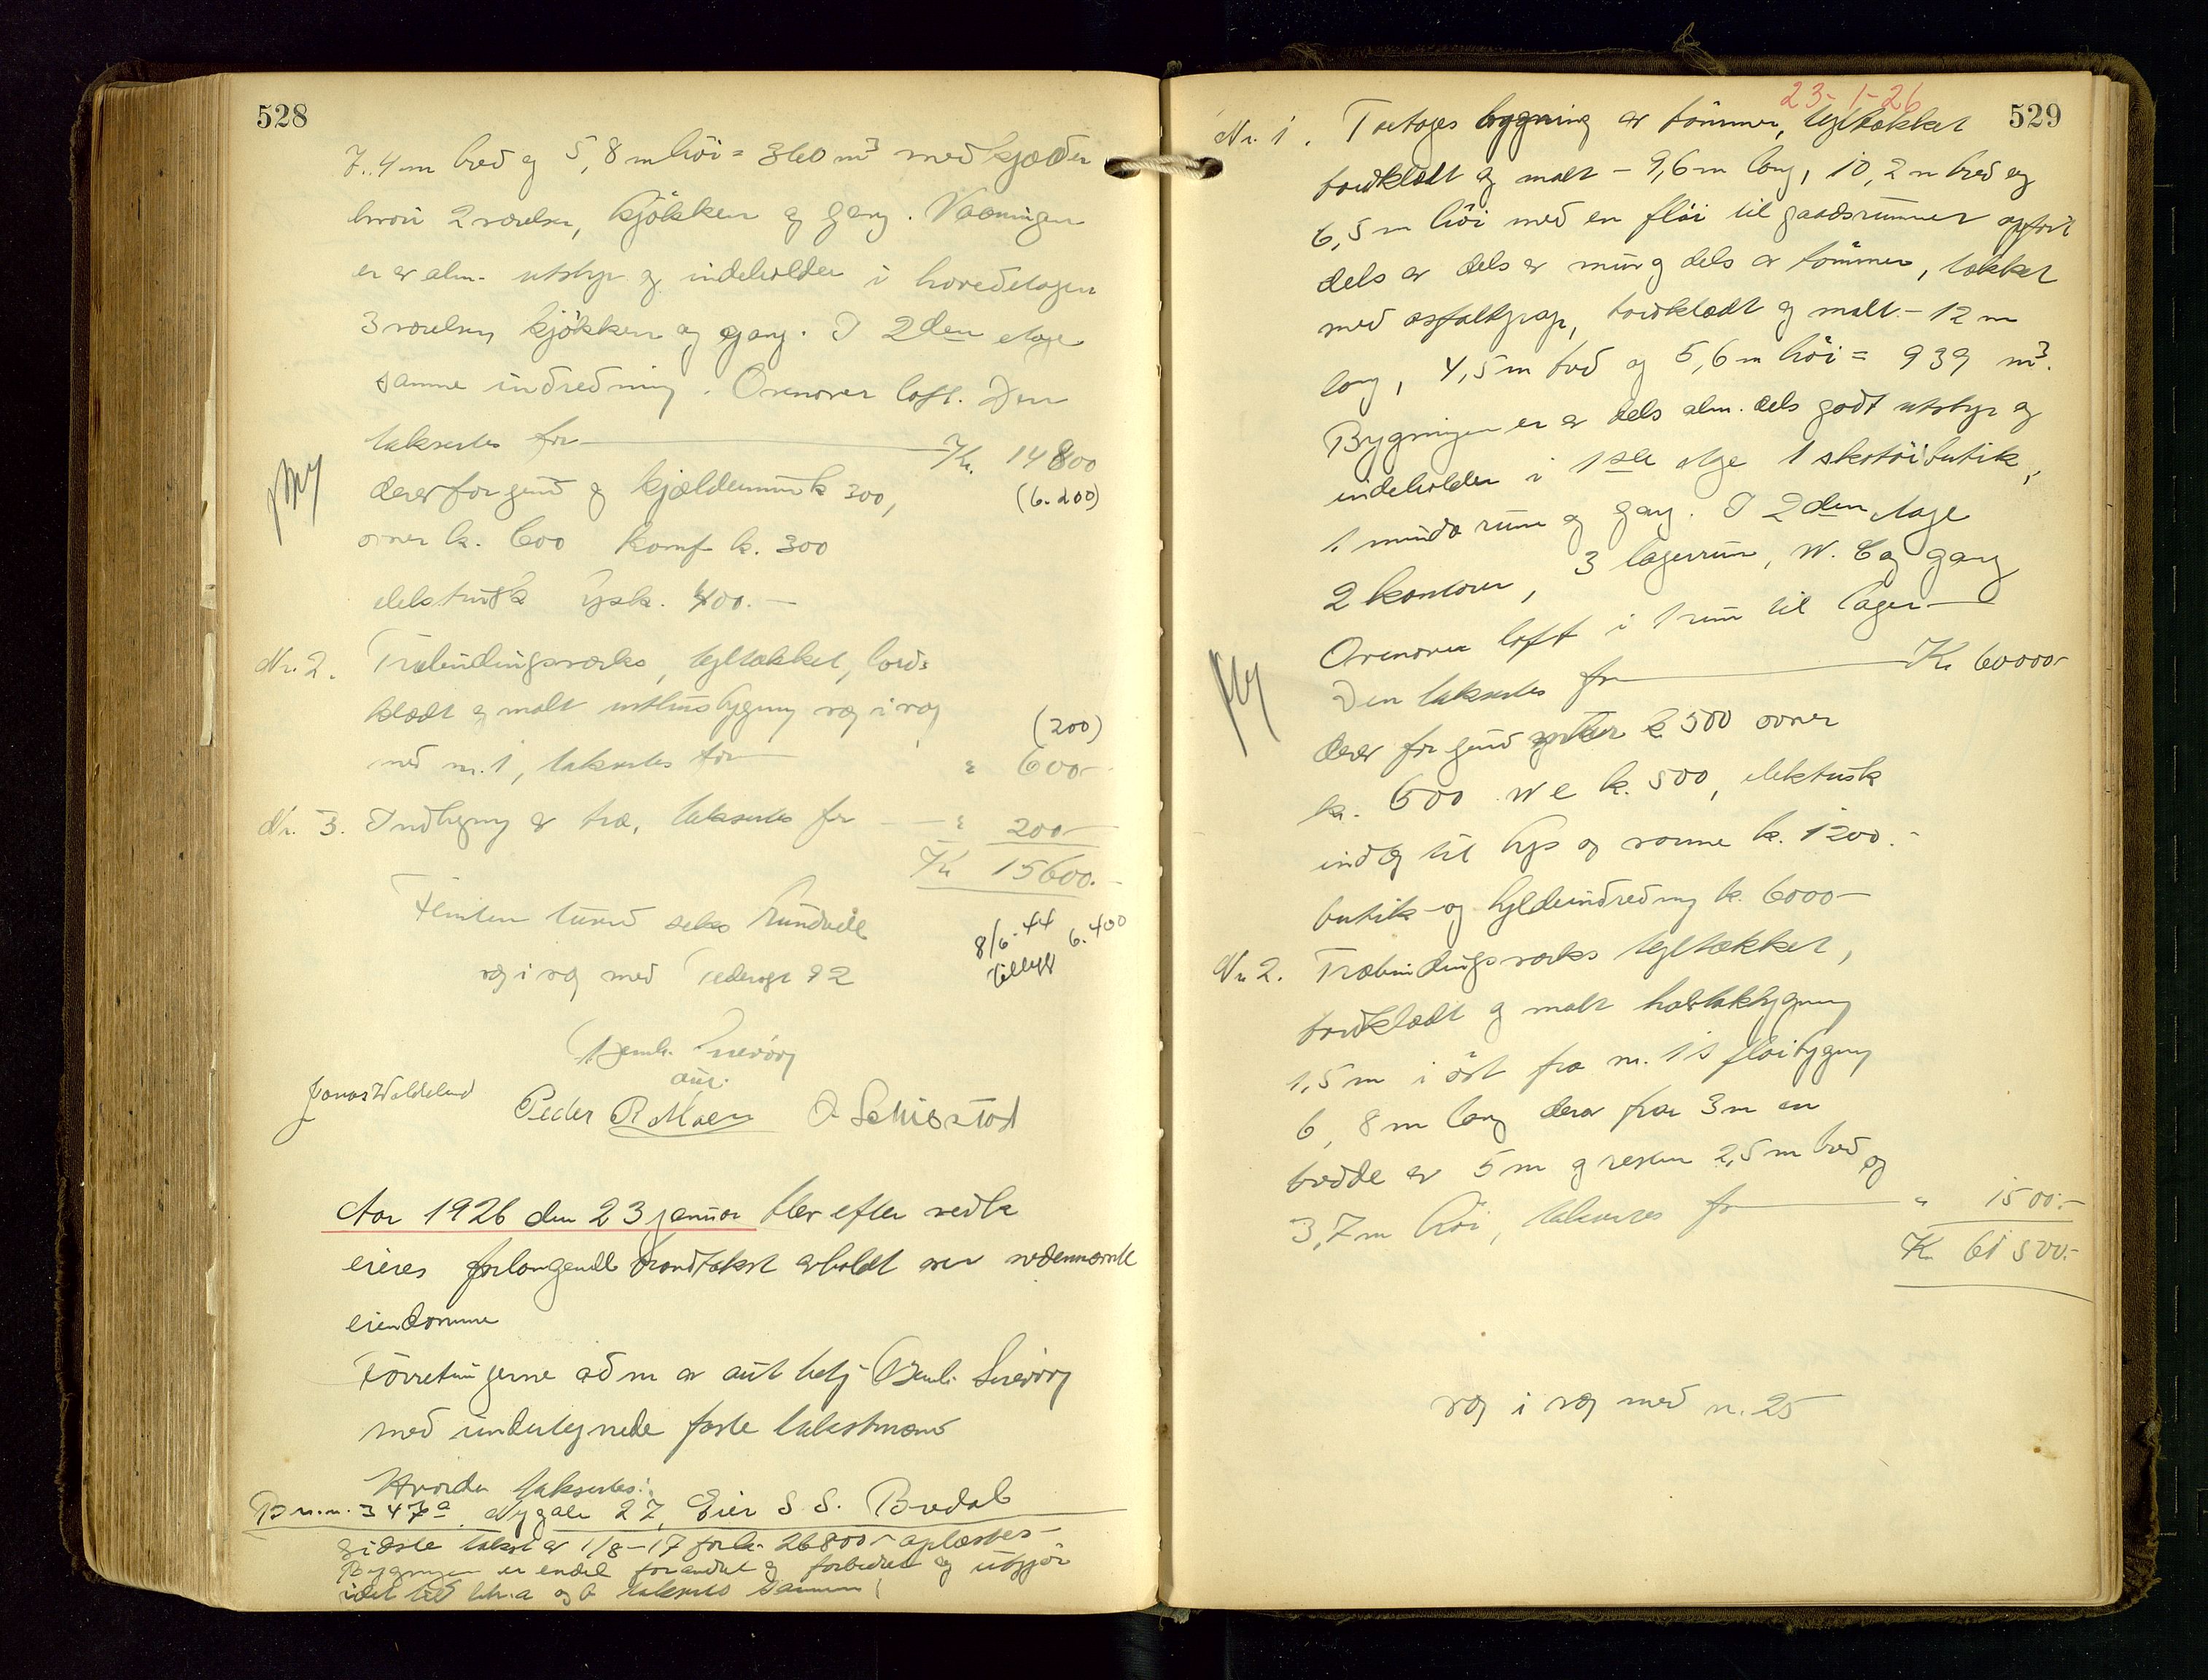 528
7.4 m bred og 5,8 m høi = 360 m³ med kjælder
hvori 2 værelser, kjøkken og gang. Vaaningen
er av alm. utstyr og indeholder i hovedetagen
3 værelser, kjøkken og gang. I 2den etage
samme indredning. Ovenover loft. Den
takseres for Kr. 14800
derav for grund og kjældermur k 300, (6.200)
ovner k. 600 komf k. 300
elektrisk lys k. 400.-
Nr. 2. Træbindingsverks, tegltækket, bord-
klædt og malt uthusbygning væg i væg (200)
med nr. 1, takseres for " 600-
Nr. 3. Indhegning av træ, takseres for " 200-
Kr 15600.-
Femten tusind seks hundrede
væg i væg med Pedersgt 92
8/6.44 6.400
tillegg
Bernh. Snevorg
aut.
Jonas Waldeland Peder R Moen O Schiøstad
Aar 1926 den 23 januar blev efter vedk
eieres forlangende brandtakst avholdt over nedennævnte
eiendomme
Forretningerne adm av aut betj Bernh. Snevorg
med undertegnede faste takstmænd
Hvorda takseres:
Br.n. 347a. Nygate 27, Eier S S. Bredal
Sidste takst av 1/8-17 for k. 26800- oplæstes-
Bygningen er endel forandret og forbedret og utgjør
idet litr. a og b takseres sammen
23-1-26
529
Nr. 1. Toetages bygning av tømmer, tegltækket
bordklædt og malt - 9,6 m lang, 10,2 m bred og
6,5 m høi med en fløi til gaardsrummet opført
dels av dels av mur og dels av tømmer, tækket
med asfaltpap, bordklædt og malt.- 12 m
lang, 4,5 m bred og 5,6 m høi = 939 m³.
Bygningen er av dels alm. dels godt utstyr og
indeholder i 1ste etge 1 skotøibutik,
1 mindre rum og gang. I 2den etage
2 kontorer, 3 lagerrum, W.C og gang
Ovenover loft i 1 rum til lager-
Den takseres for Kr 60000-
derav for grund k 500 ovner
k. 600 W C k. 500, elektrisk
indlg til lys og varme k. 1200.-
butik- og hyldeindredning k. 6000-
Nr 2. Træbindingsverks tegltækket,
bordklædt og malt halvtaksbygning
1,5 m i øst fra nr. 1s fløibygning
6,8 m lang derav for 3 m en
bredde av 5 m og resten 2,5 m bred og
3,7 m høi, takseres for " 1500.-
Kr 61 500.-
væg i væg med n. 25